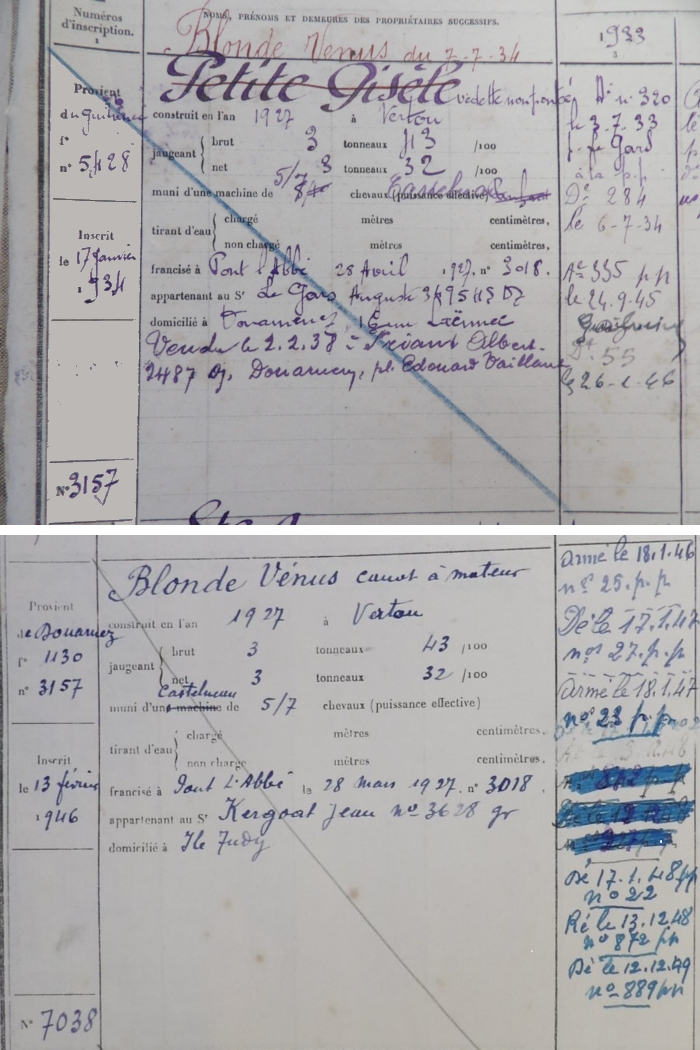 Numéros
d'inscription.
1
NOMS, PRÉNOMS ET DEMEURES DES PROPRIÉTAIRES SUCCESSIFS.
Blonde Vénus du 7-7-34
1933
3
Petite Gisèle vedette non pontée
Provient
du Guilvinec
f°
n° 5428
construit en l'an 1927 à Vertou
jaugeant brut 3 tonneaux 43 /100
net 3 tonneaux 32 /100
muni d'une machine de 5/7 chevaux (puissance effective) Castelneau
tirant d'eau chargé mètres centimètres.
non chargé mètres centimètres.
Inscrit
le 17 janvier
1934
francisé à Pont l'Abbé 28 Avril 1927. n° 3018.
appartenant au Sr Le Gars Auguste
domicilié à Douarnenez
Vendu le 2.2.38 à Albert.
2487 Dz, Douarnenez, pl. Edouard Vaillant
N° 3157
Ar n° 320
le 3.7.33
p. Le Gars
à la p.p
Dé 284
le 6-7-34
Ar 335 p p
le 24.9.45
Guilvinec
Dé 55
le 26-1-46
Blonde Vénus canot à moteur
Provient
de Douarnez
f° 1130
n° 3157
construit en l'an 1927 à Vertou
jaugeant brut 3 tonneaux 43 /100
net 3 tonneaux 32 /100
Castelneau
muni d'une machine de 5/7 chevaux (puissance effective)
tirant d'eau chargé mètres centimètres.
non chargé mètres centimètres.
Inscrit
le 13 février
1946
francisé à Pont L'Abbé le 28 Mars 1927. n° 3018.
appartenant au Sr Kergoat Jean n° 3628 gr
domicilié à Ile Tudy
N° 7038
armé le 18.1.46
n° 25. p.p
Dé le 17.1.47
n° 27. p.p
Armé le 18.1.47
n° 23 p.p
Dé 17.1.48 pp
n° 22
Ré le 13.12.48
n° 872 pp
Dé le 12.12.49
n° 889 pp